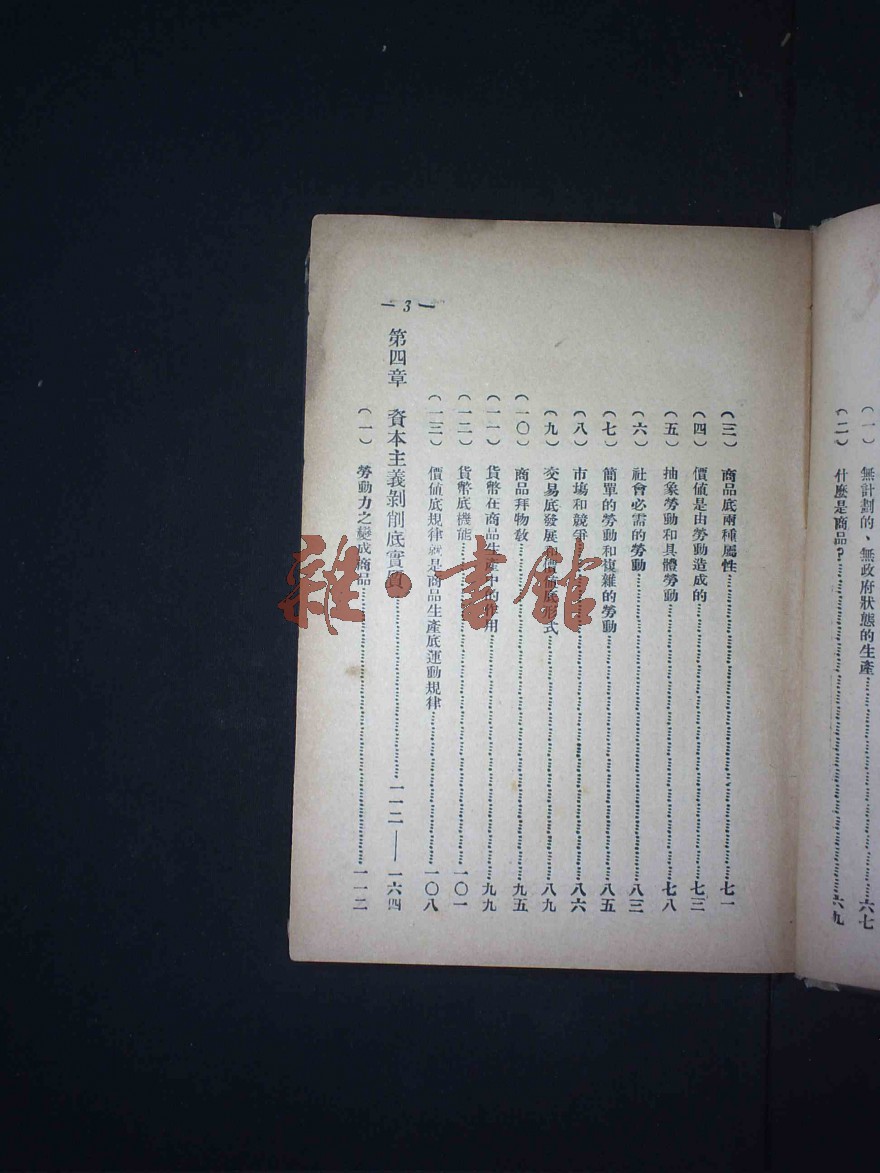 (一) 無計劃的、無政府狀態的生產 六七
(二) 什麼是商品? 六九
(三) 商品底兩種屬性 七一
(四) 價值是由勞動造成的 七三
(五) 抽象勞動和具體勞動 七八
(六) 社會必需的勞動 八三
(七) 簡單的勞動和複雜的勞動 八五
(八) 市場和競爭 八六
(九) 交易底發展和價值底形式 八九
(一〇) 商品拜物教 九五
(一一) 貨幣在商品生產中的作用 九九
(一二) 貨幣底機能 一〇一
(一三) 價值底規律就是商品生產底運動規律 一〇八
第四章 資本主義剝削底實質 一一二——一六四
(一) 勞動力之變成商品 一一二
— 3 —
雜·書館